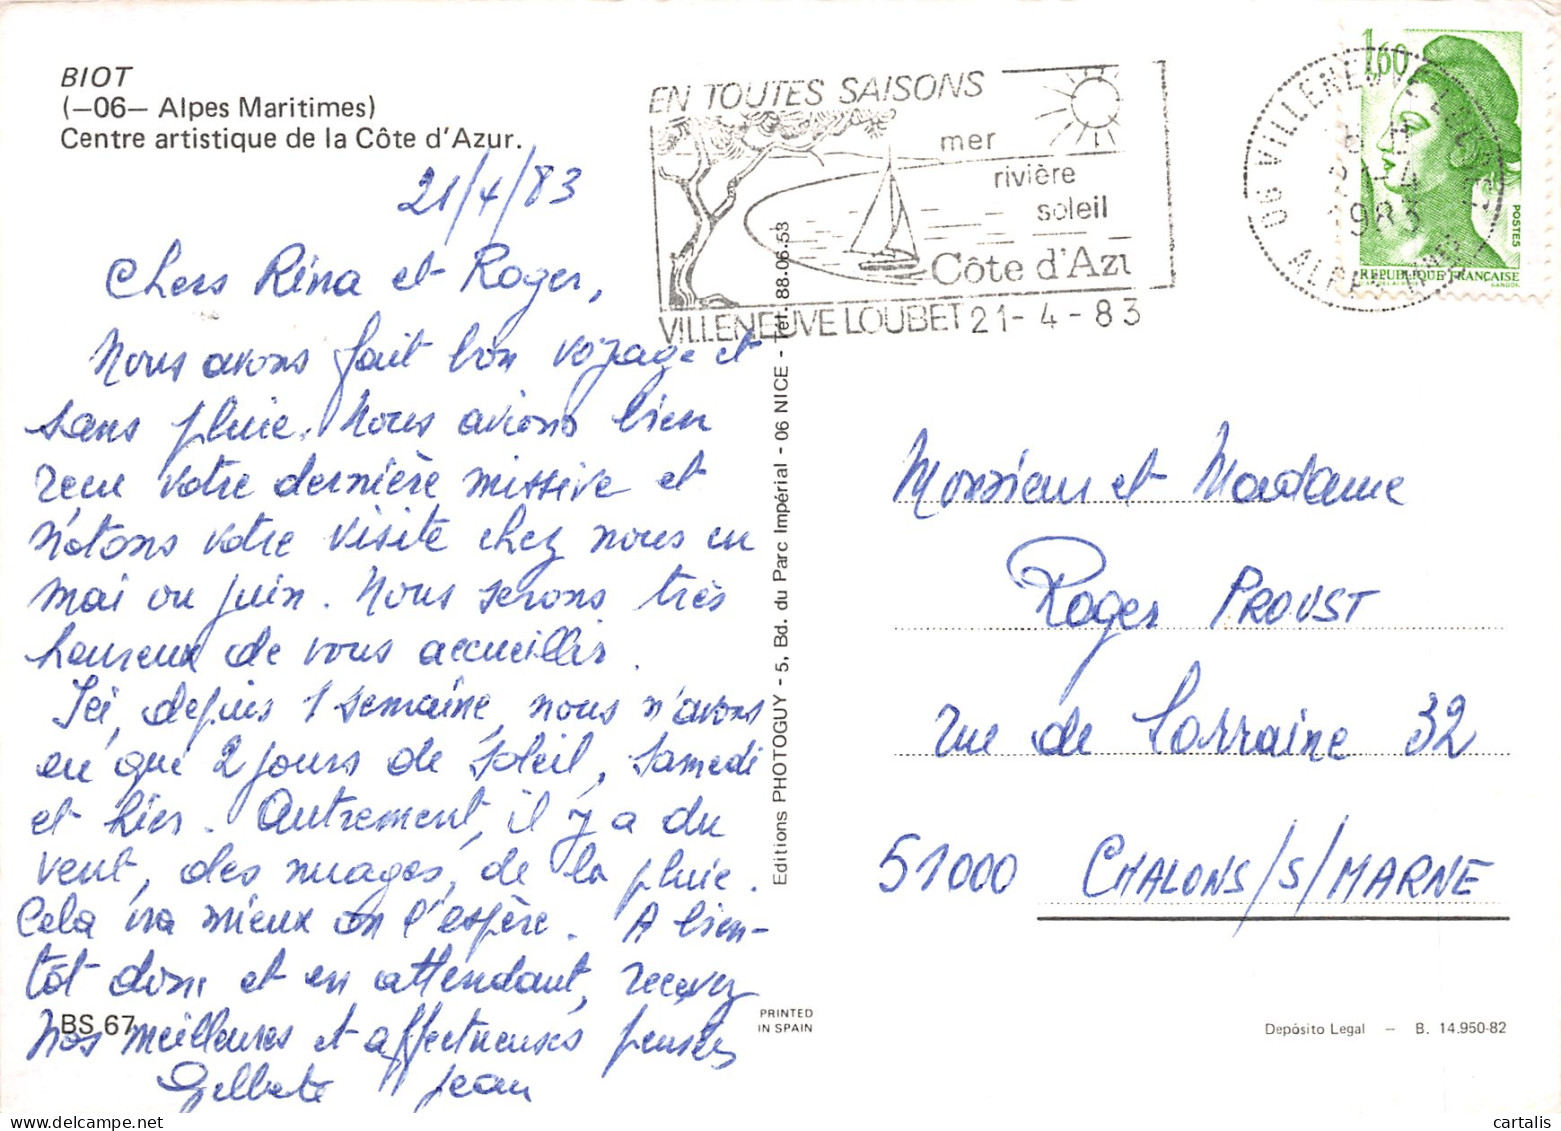 BIOT
(—06— Alpes Maritimes)
Centre artistique de la Côte d'Azur.
21/4/83
Chers Rina et Roger,
Nous avons fait bon voyage et
sans pluie. Nous avions bien
reçu votre dernière missive et
notons votre visite chez nous en
mai ou juin. Nous serons très
heureux de vous accueillir.
Ici, depuis 1 semaine, nous n'avons
eu que 2 jours de soleil, samedi
et hier. Autrement, il y a du
vent, des nuages, de la pluie.
Cela ira mieux on l'espère. A bien-
tôt donc et en attendant, recevez
Nos meilleures et affectueuses pensées
Gilberte Jean
BS 67
EN TOUTES SAISONS
mer
rivière
soleil
Côte d'Azu
VILLENEUVE LOUBET 21-4-83
06 VILLENEUVE LOUBET
21-4
1983
ALPES MMES
1,60
POSTES
REPUBLIQUE FRANÇAISE
GANDON
Editions PHOTOGUY - 5, Bd. du Parc Impérial - 06 NICE - Tél. 88.06.53
Monsieur et Madame
Roger PROUST
rue de Lorraine 32
51000 CHALONS/S/MARNE
PRINTED
IN SPAIN
Depósito Legal — B. 14.950-82
cartalis